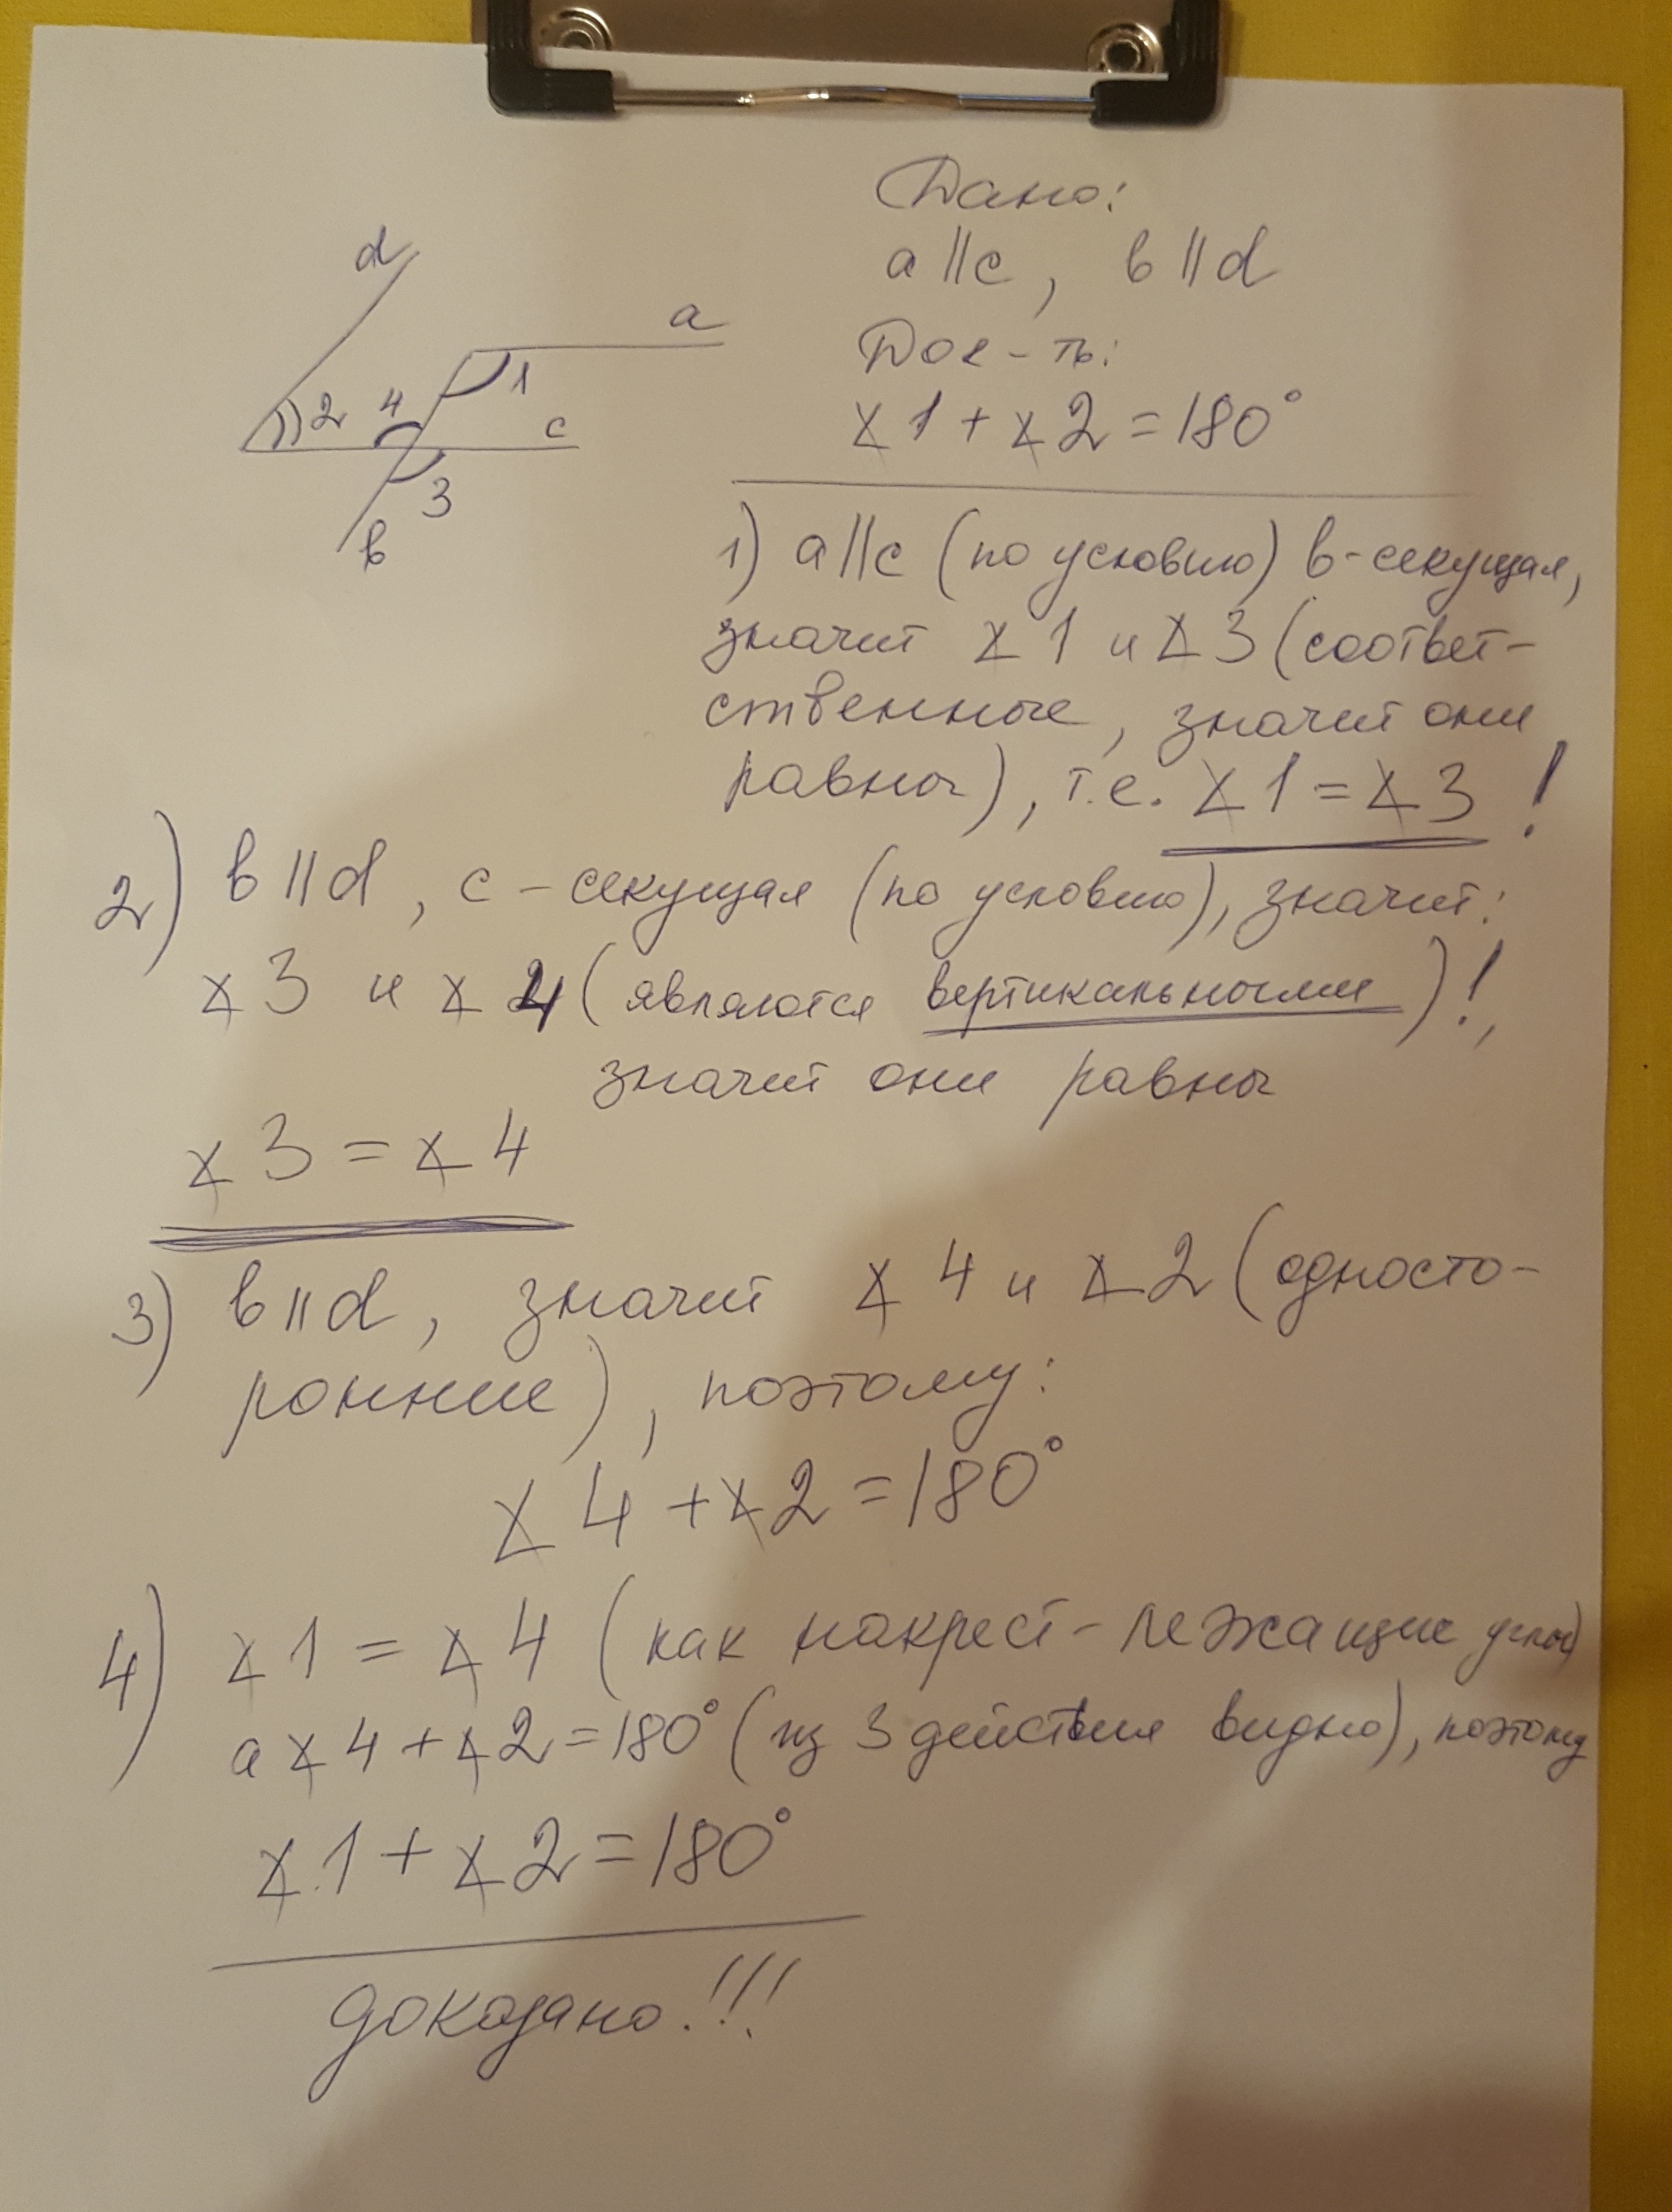 d
a
2 4 1
c
3
в
Дано:
a || c, в || d
Док-ть:
∡1 + ∡2 = 180°
1) a || c (по условию) в - секущая,
значит ∡1 и ∡3 (соответ-
ственные, значит они
равны), т.е. ∡1 = ∡3 !
2) в || d, c - секущая (по условию), значит:
∡3 и ∡4 (являются вертикальными)!,
значит они равны
∡3 = ∡4
3) в || d, значит ∡4 и ∡2 (односто-
ронние), поэтому:
∡4 + ∡2 = 180°
4) ∡1 = ∡4 (как накрест-лежащие углы)
а ∡4 + ∡2 = 180° (из 3 действия видно), поэтому
∡1 + ∡2 = 180°
доказано!!!